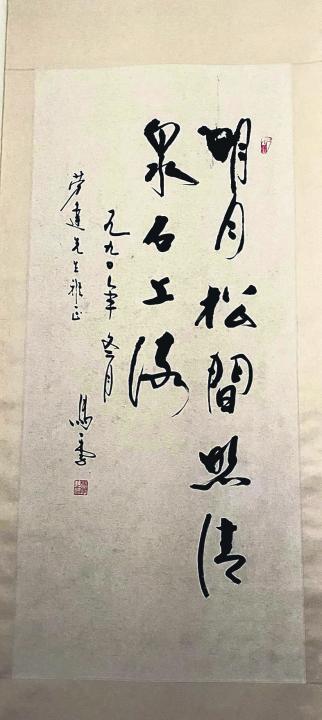 明月松間照清
泉石上流
一九九〇年冬月
劳達先生雅正
馬季